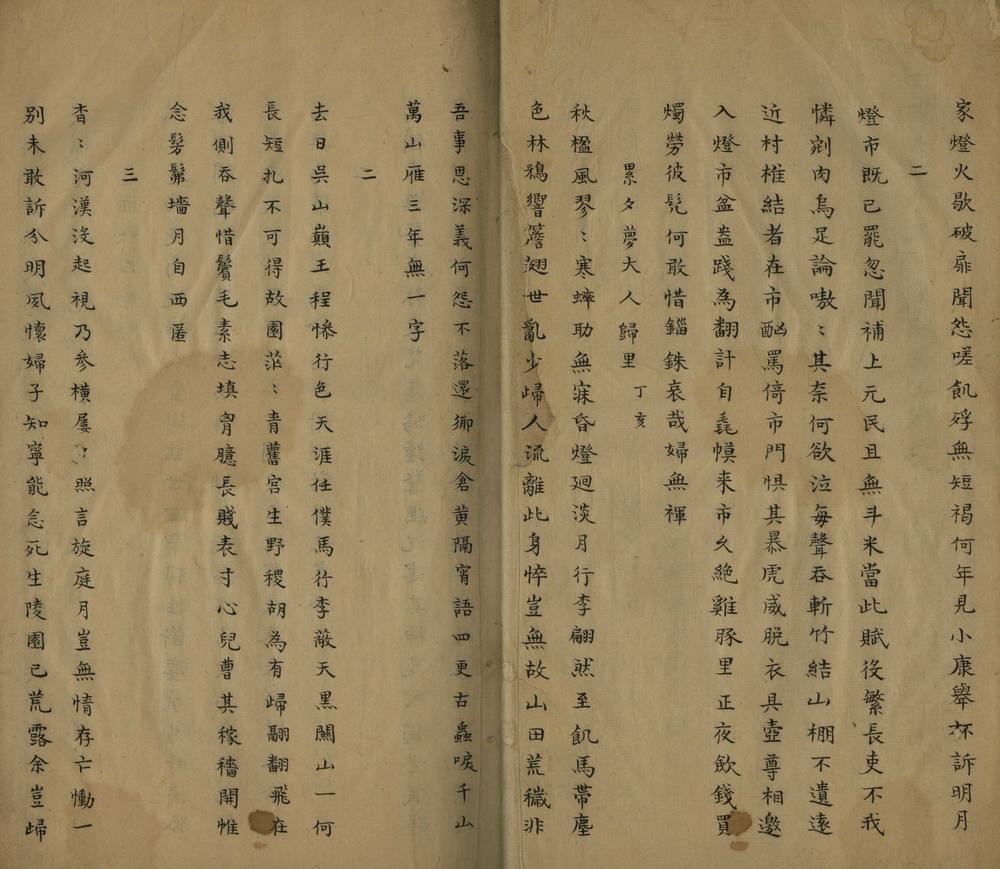 家燈火歇破扉聞怨嗟飢殍無短褐何年見小康舉杯訴明月
二
燈市既已罷忽聞補上元民且無斗米當此賦役繁長吏不我
憐剜肉烏足論嗷〻其奈何欲泣每聲吞斬竹結山棚不遺遠
近村椎結者在市酗罵倚市門惧其暴虎威脫衣具壺尊相邀
入燈市盆盎踐為翻計自毳幙来市久絶雞豚里正夜飲錢買
燭勞彼髡何敢惜錙銖哀哉婦無褌
累夕夢大人歸里丁亥
秋楹風翏〻寒蟀助無寐昏燈廻淡月行李翩然至飢馬帶塵
色林鴉響簷翅世亂少歸人流離此身悴豈無故山田荒穢非
吾事恩深義何怨不落還鄉淚倉黄隔宵語四更古蟲唳千山
萬山雁三年無一字
二
去日吳山巔王程慘行色天涯任僕馬行李蔽天黑關山一何
長短札不可得故園茫〻青舊宮生野稷胡為有歸翮翻飛在
我側吞聲惜鬢毛素志填胷臆長賤表寸心兒曹其稼穡開帷
念髣髴墻月自西匿
三
杳〻河漢沒起視乃參横屢照言旋庭月豈無情存亡慟一
別未敢訴分明夙懷婦子知寧能念死生陵園已荒露余豈歸